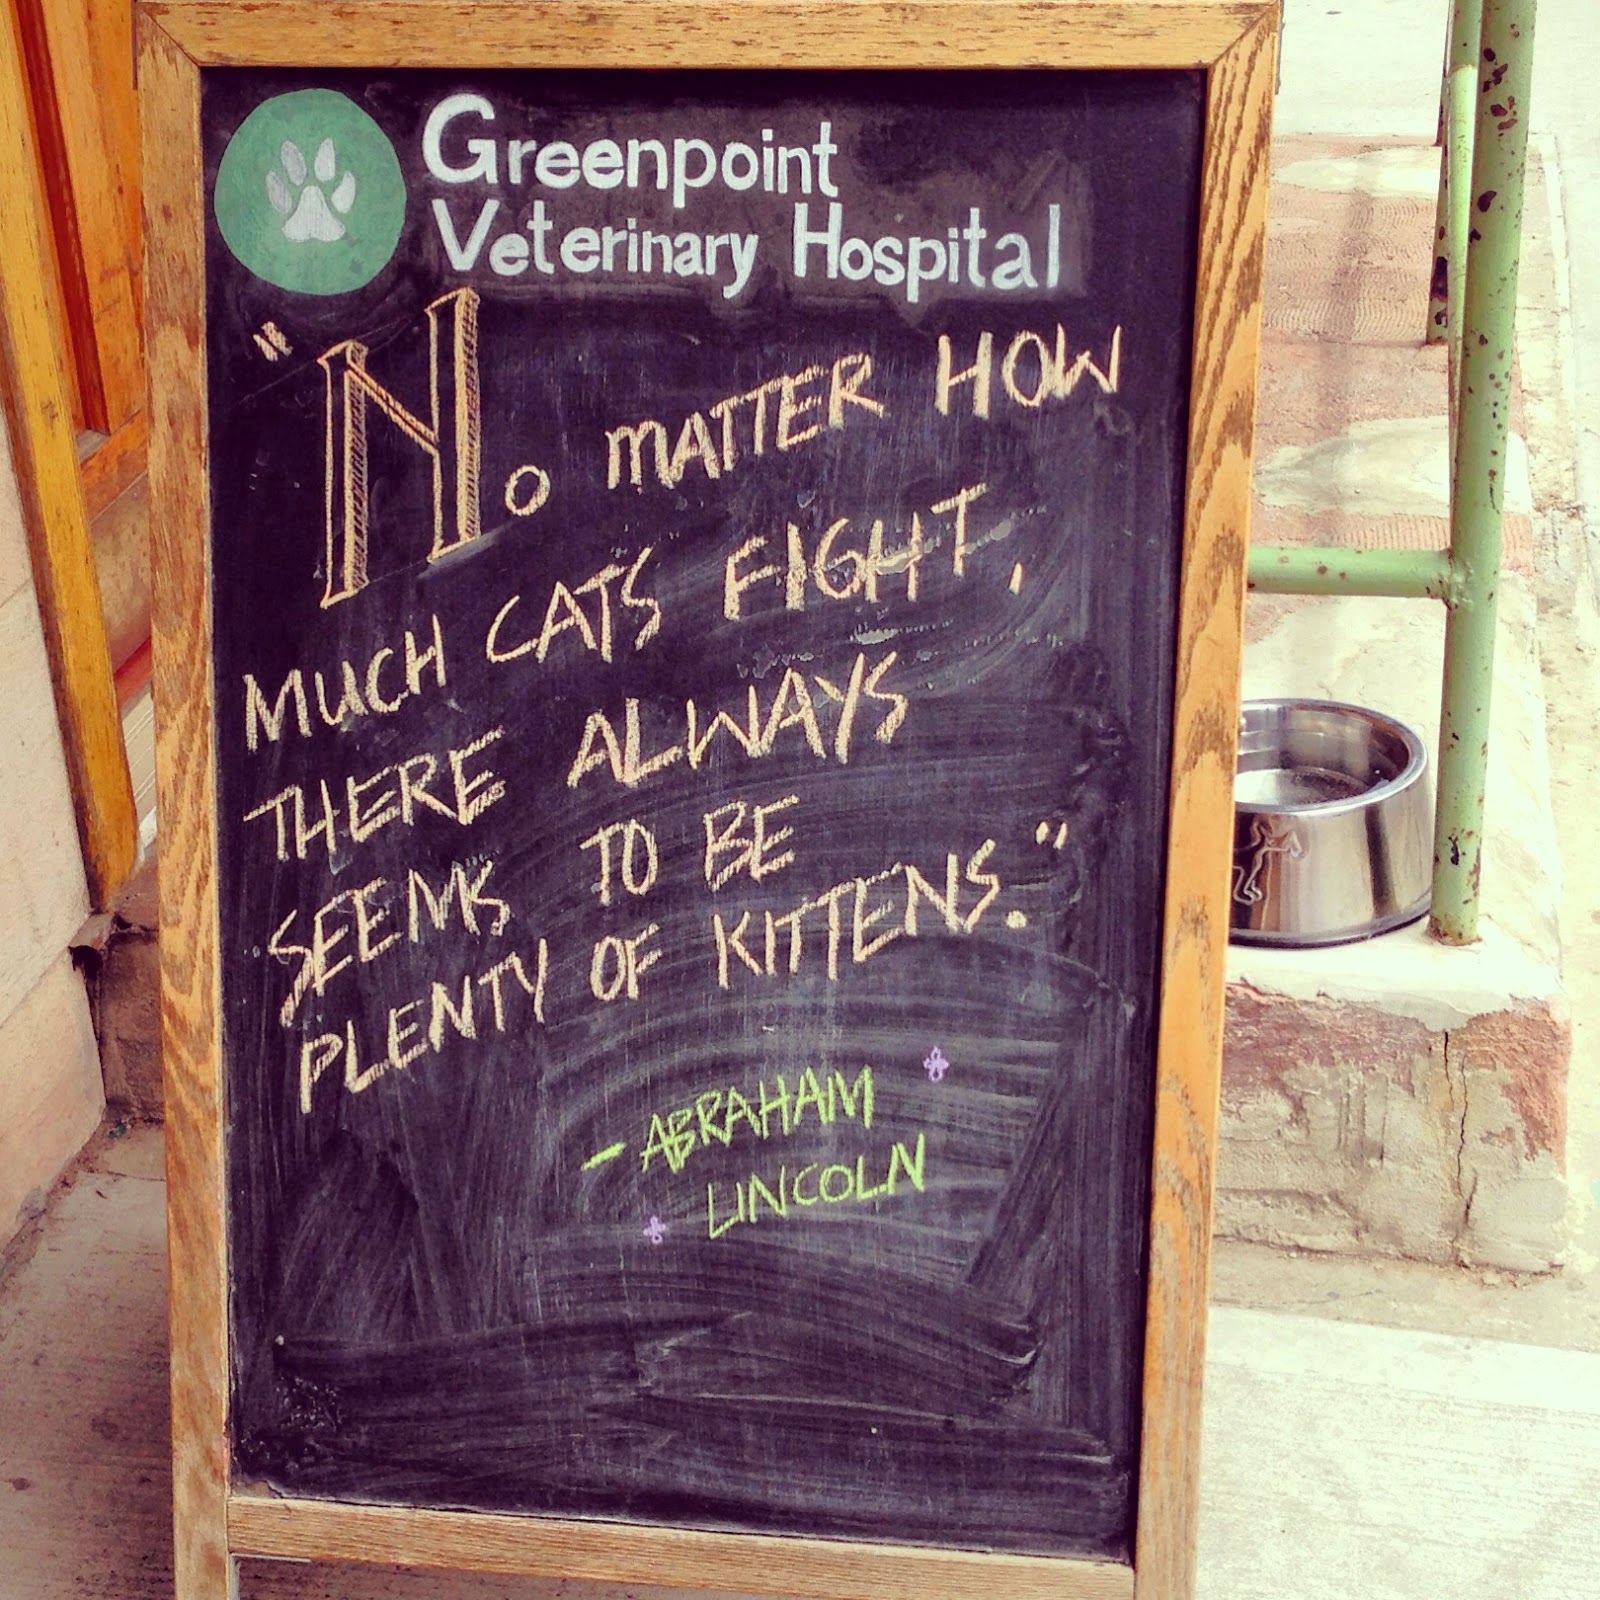 Greenpoint
Veterinary Hospital
"No MATTER HOW
MUCH CATS FIGHT,
THERE ALWAYS
SEEMS TO BE
PLENTY OF KITTENS."
- ABRAHAM
LINCOLN